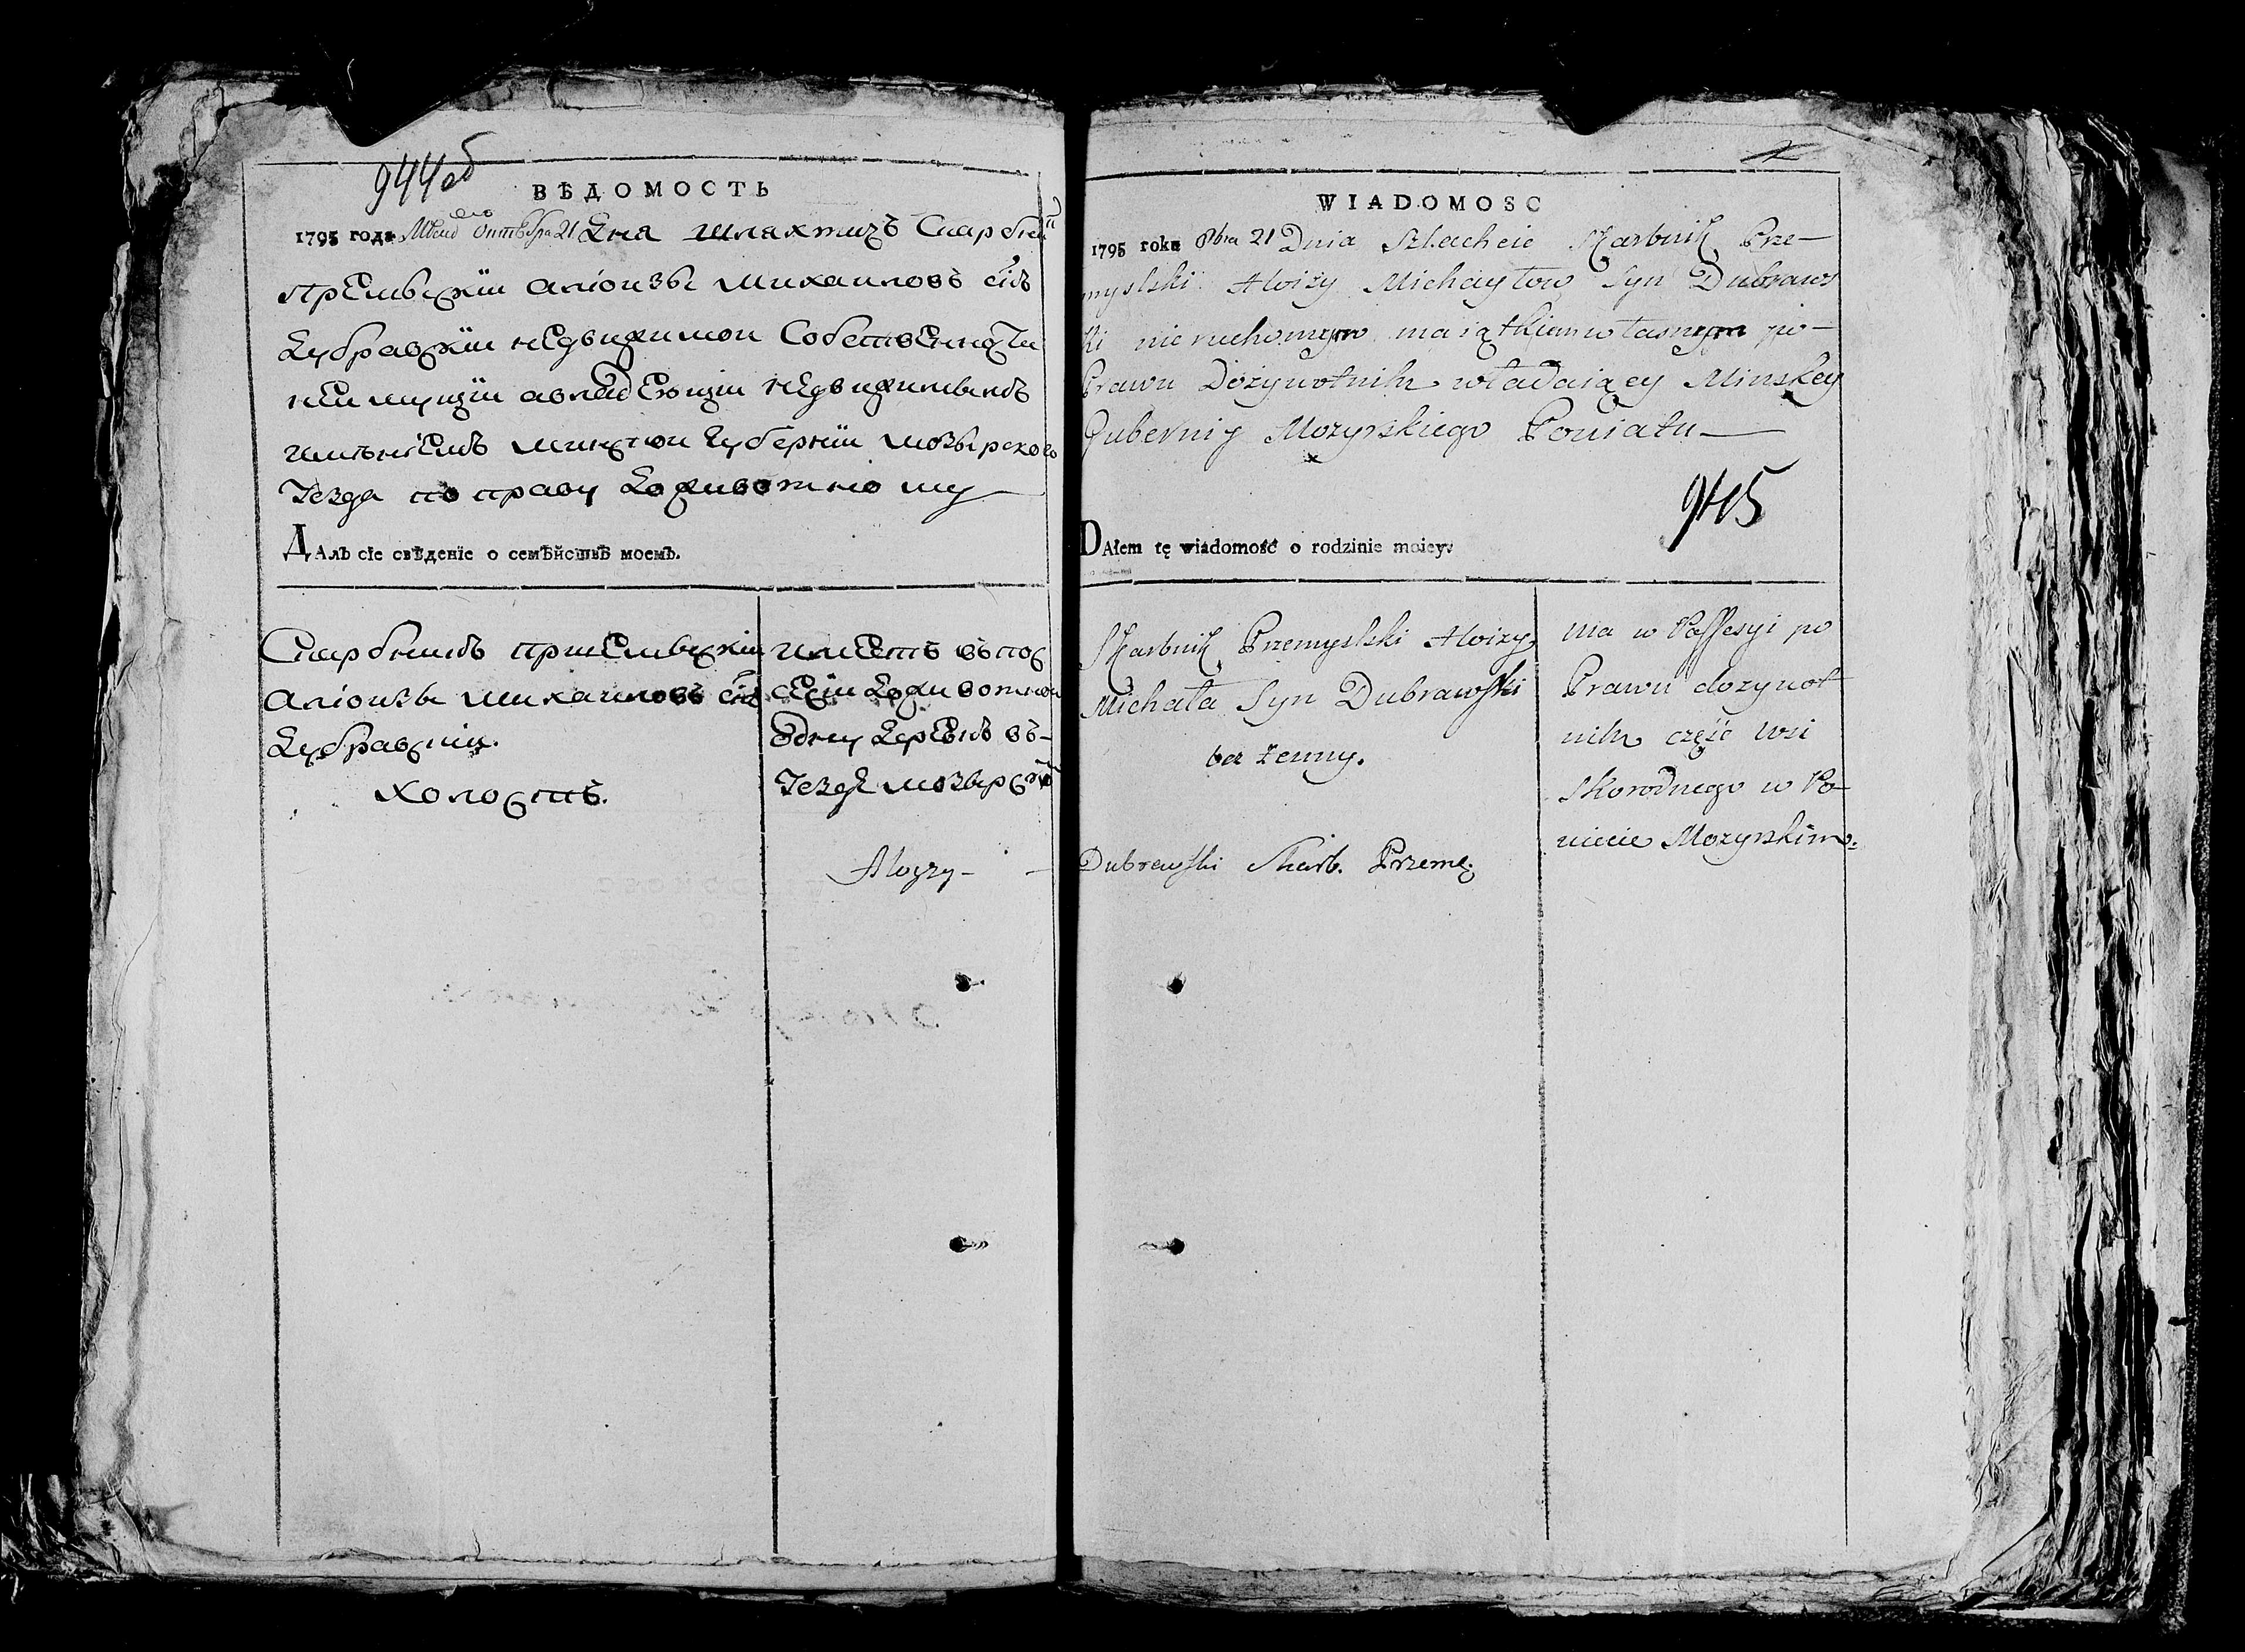 944об
ВѢДОМОСТЬ
1795 года Октебра 21 Дня шляхтичъ Скарбни
Алiоизы михаиловъ снъ
Дубравскiи недвижимои Собственности
неимущiи авладеющiи недвижимымъ
имѣнiемъ минскои Губернiи мозырского
Уезда по праву Доживотному
ДАлъ сіе свѣденіе о семѣйствѣ моемъ.
Скарбникъ
Алiоизы михаиловъ снъ
Дубравскiи.
холостъ.
имеетъ въпос
сесiи Доживотнои
Одну Деревню въ
Уезде мозырском
Aloyzy -
WIADOMOSC
1795 roku 8bra 21 Dnia Szlachcic Skarbnik Prze-
myslski Aloizy Michayłow Syn Dubraws
ki nieruchomym maiątkiem własnym po-
Prawu Dożywotnim władaiący Minskey
Gubernij Mozyrskiego Powiatu
945
DAłem tę wiadomość o rodzinie moiey.
Skarbnik Przemyslski Aloizy
Michała Syn Dubrawski
bez żenny.
ma w Possesyi po
Prawu dozywot
nim część wsi
Skorodnego w Po-
wiecie Mozyrskim.
Dubrawski Skarb. Przemy.